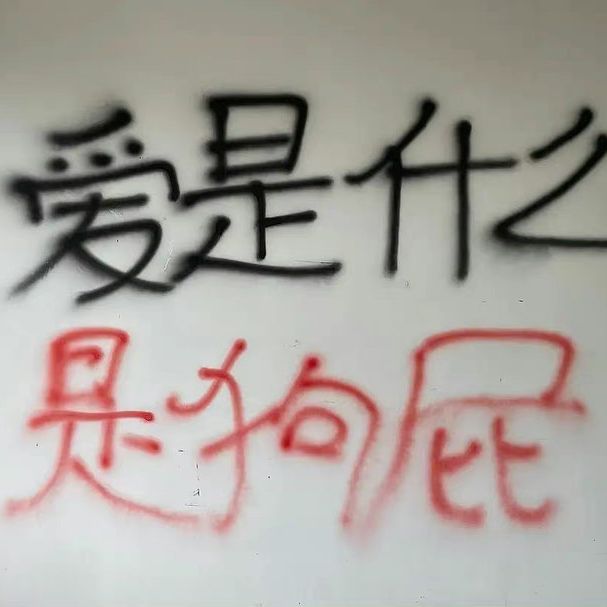 爱是什么
是狗屁